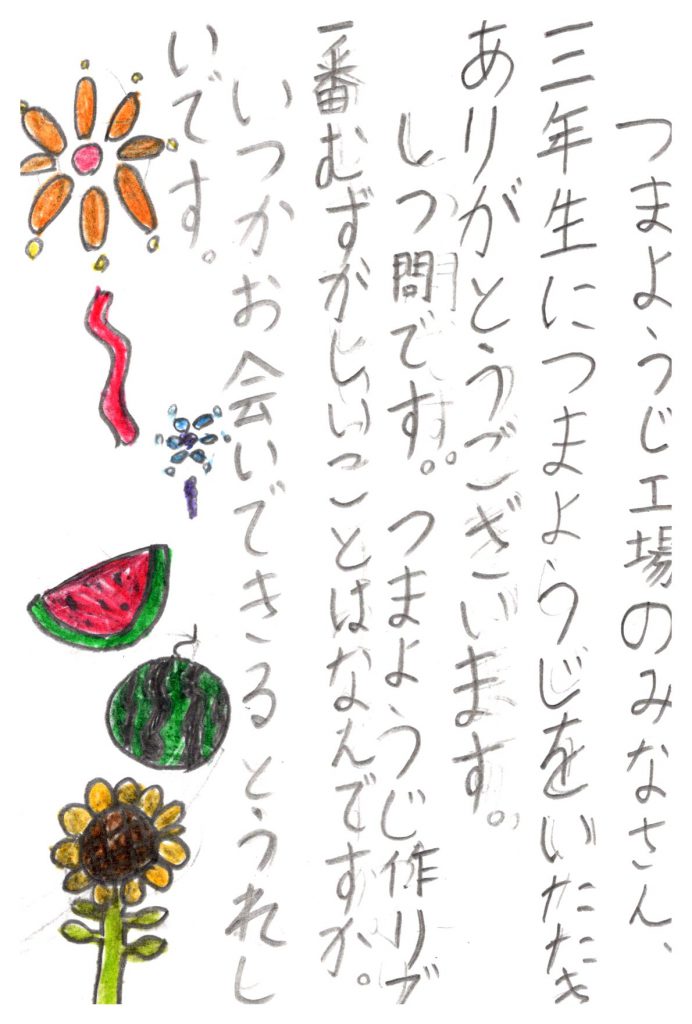 つまようじ工場のみなさん、
三年生につまようじをいたたき
ありがとうございます。
しつ問です。つまようじ作りで
一番むずがしいことはなんですか。
いつかお会いできるとうれし
いです。